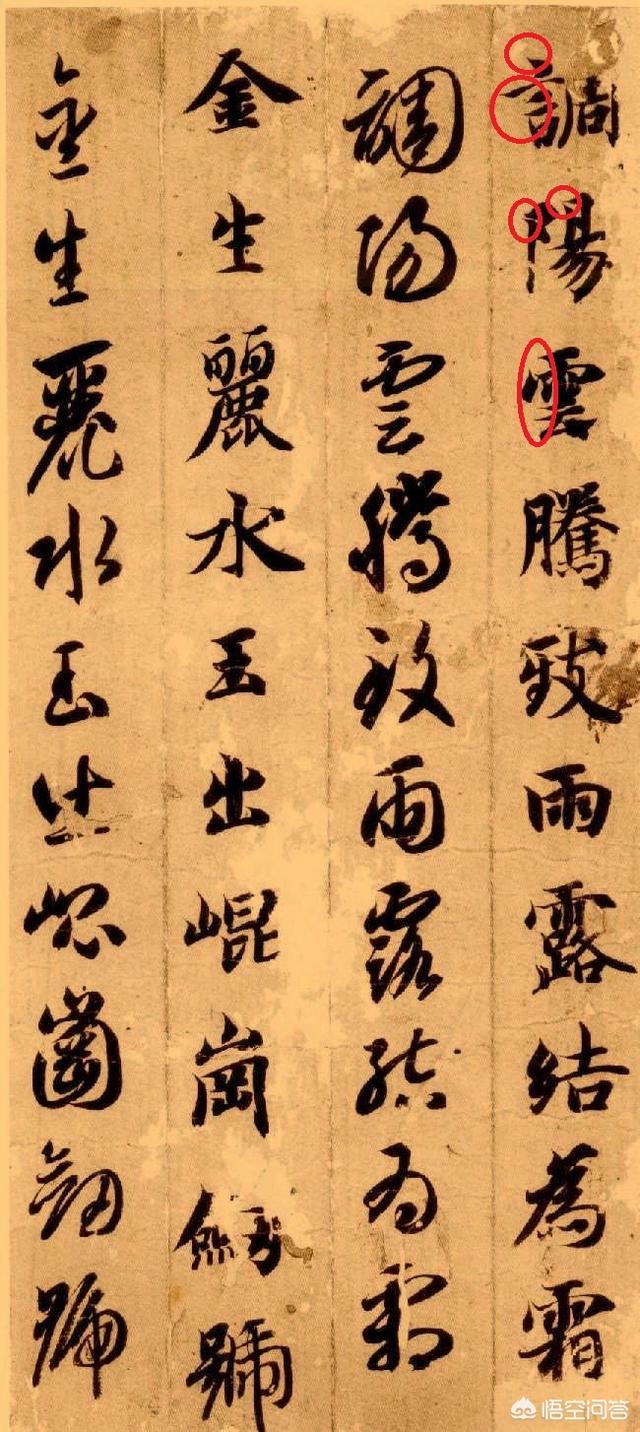 調陽雲騰致雨露結為霜
調陽雲騰致雨露結為霜
金生麗水玉出崐崗劒號
金生麗水玉出崐崗劒號
悟空问答